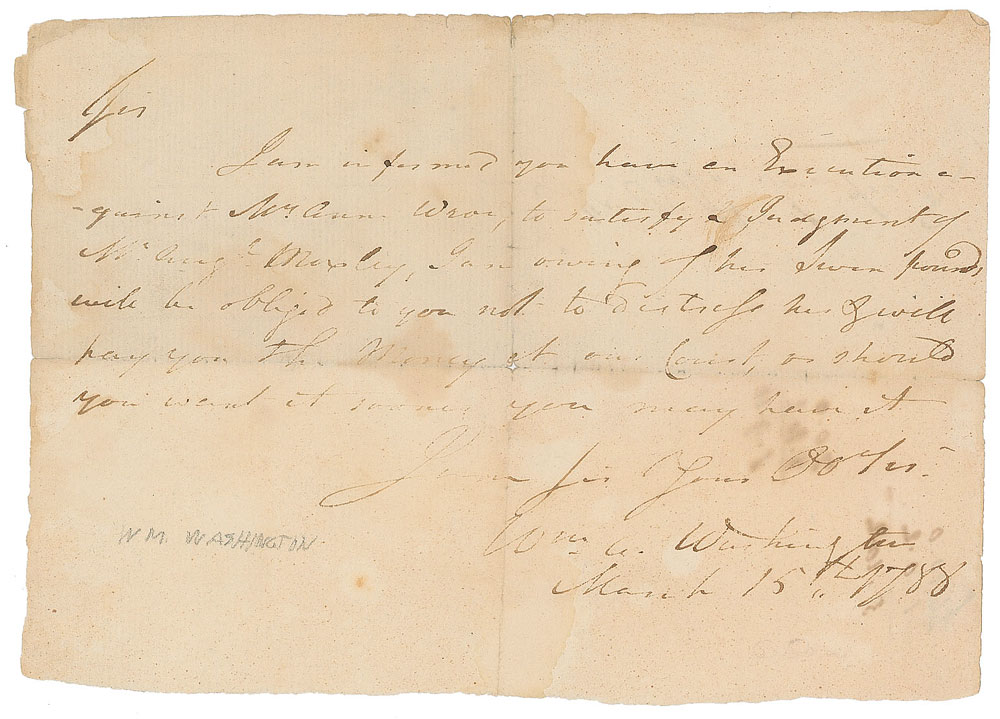 Sir
I am informed you have an Execution a-
-gainst Mrs. Ann Wroe, to satisfy a Judgment of
Mr. Augt. Moxley, I am owing of her Seven pounds
will be obliged to you not to distress her & will
pay you the Money at our Court, or should
you want it sooner you may have it
I am Sir Your Ob. Ser.
Wm. A. Washington
March 15th 1788
WM. WASHINGTON